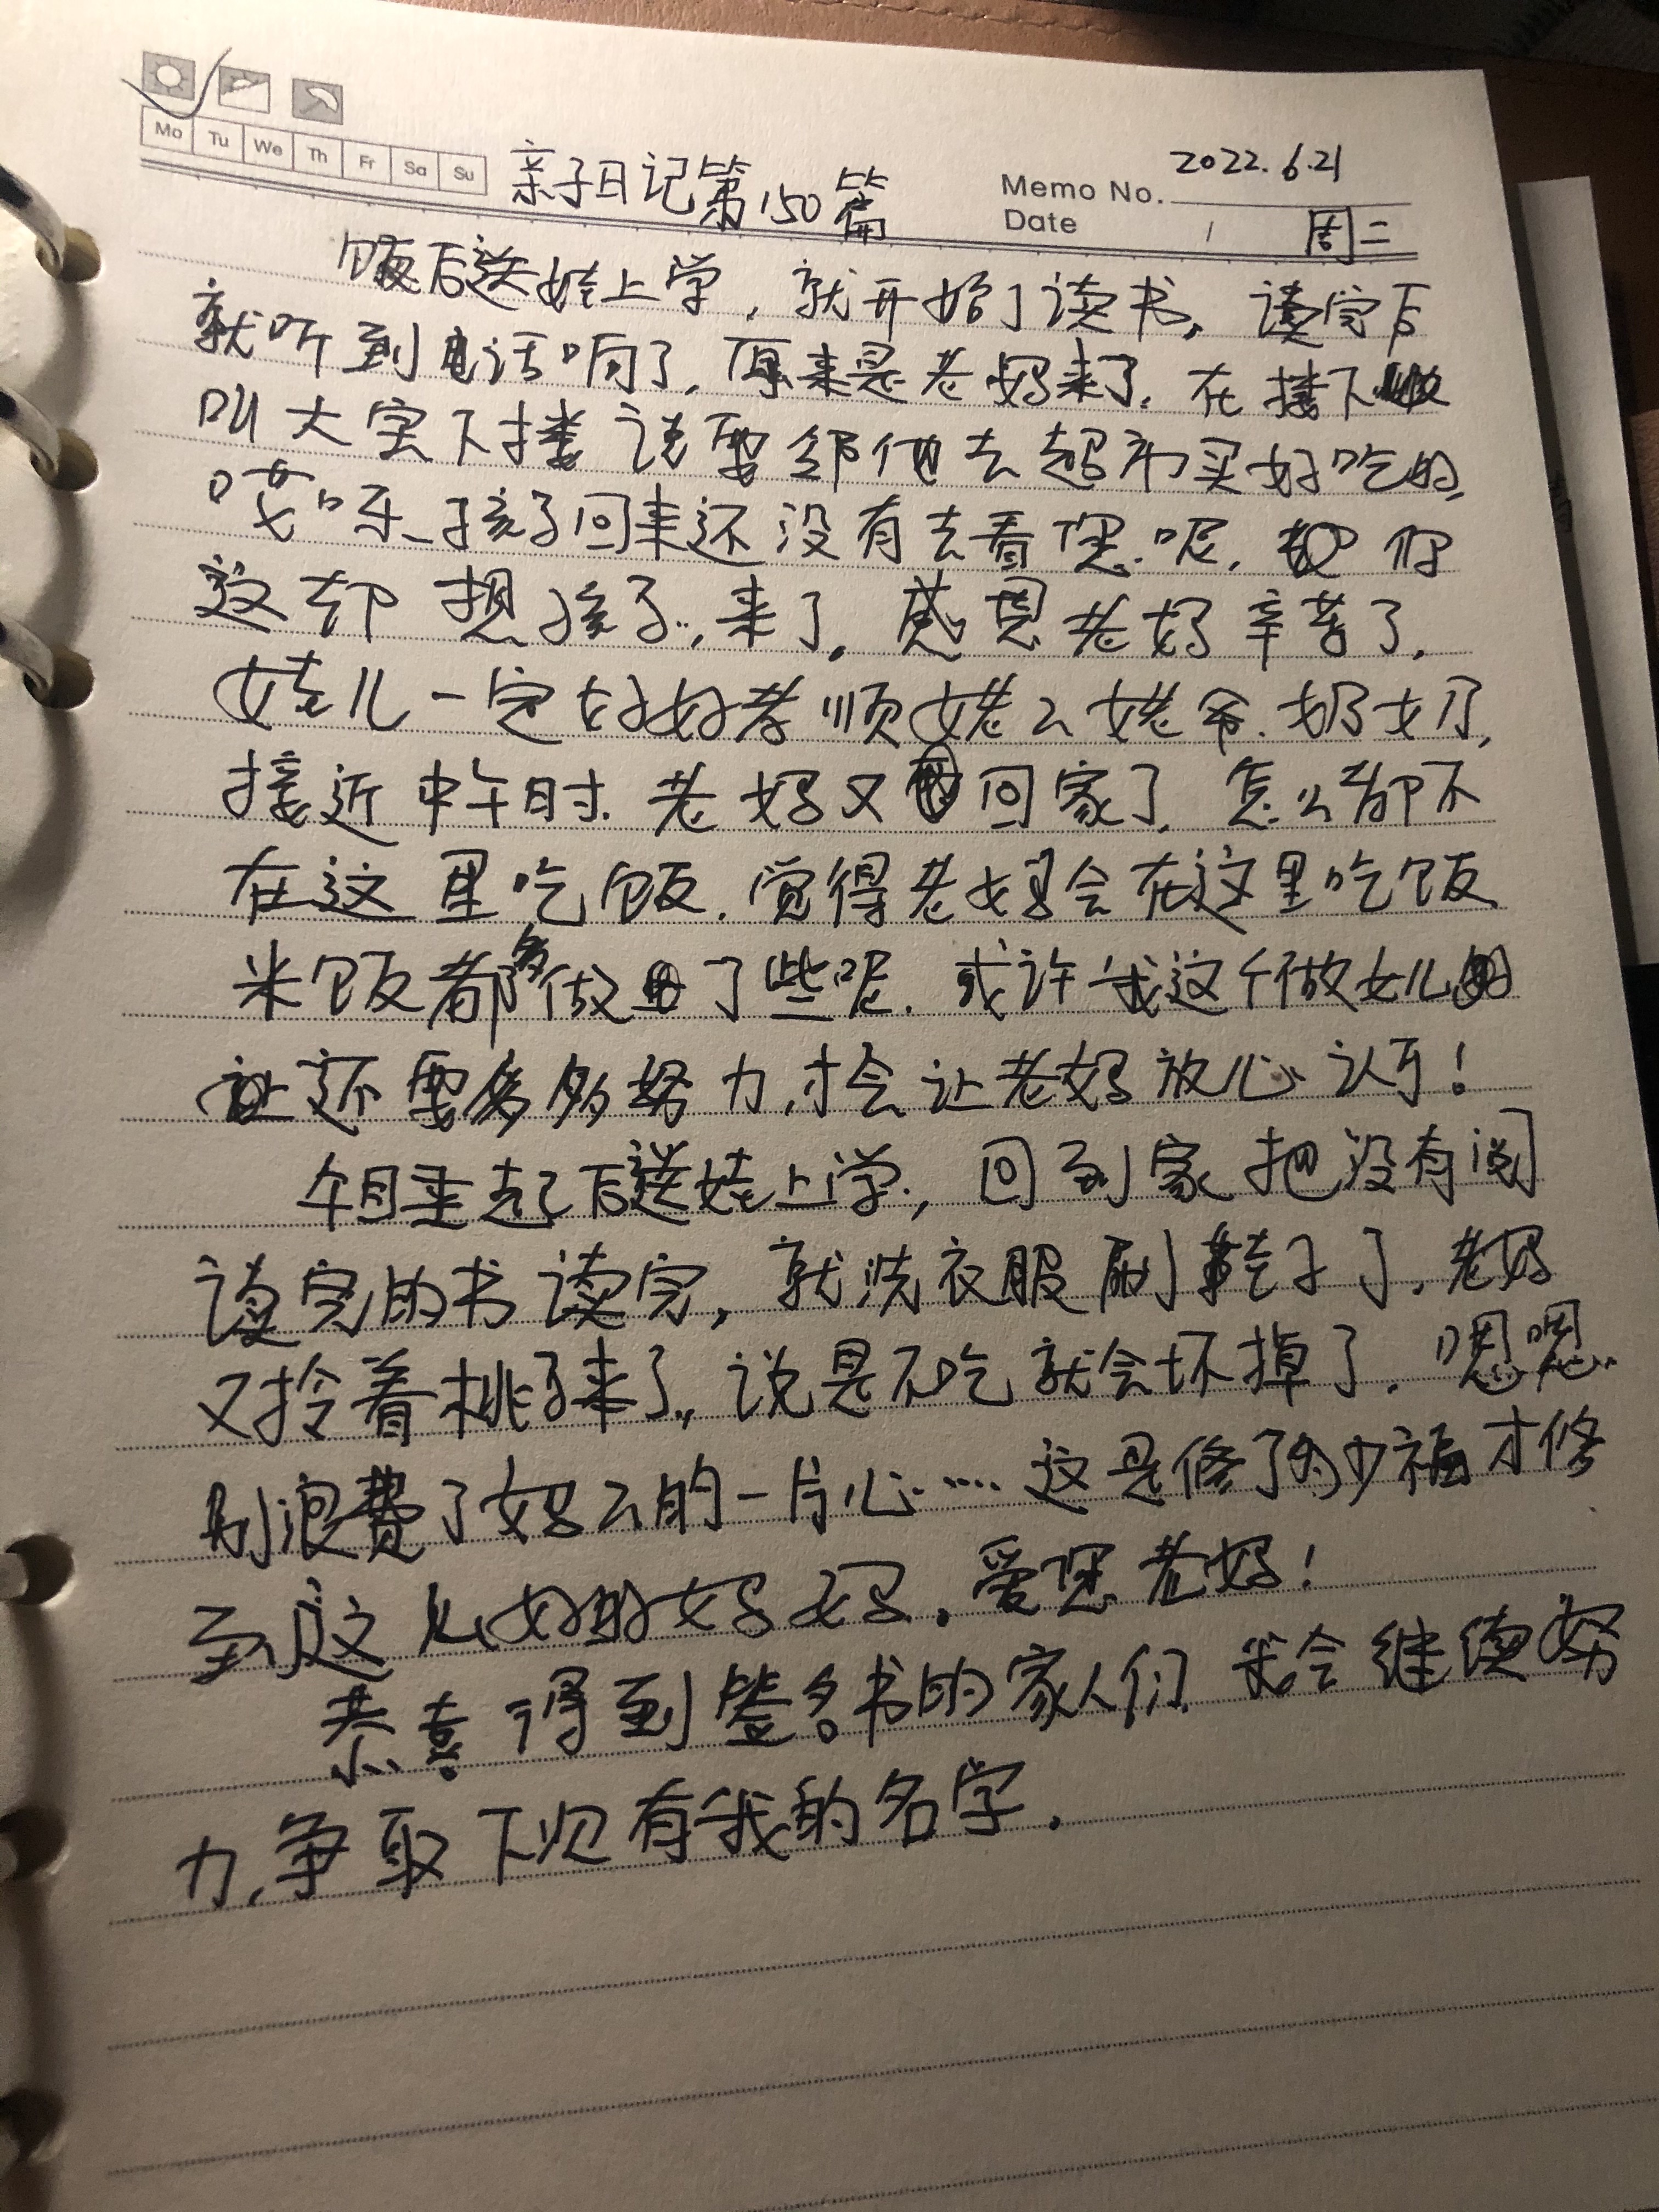 Mo Tu We Th Fr Sa Su
亲子日记第150篇
Memo No. 2022.6.21
Date / 周二
饭后送娃上学，就开始了读书。读完后
就听到电话响了，原来是老妈来了。在楼下
叫大宝下楼说要领他去超市买好吃的，
哎呀、孩子回来还没有去看您呢，您
这却想孩子，来了。感恩老妈辛苦了。
娃儿一定好好孝顺姥么姥爷.奶奶，
接近中午时.老妈又回家了，怎么都不
在这里吃饭.觉得老妈会在这里吃饭
米饭都多做了些呢.或许我这个做女儿
还要多多努力,才会让老妈放心认可！
午睡起后送娃上学，回到家把没有阅
读完的书读完，就洗衣服刷鞋子了.老妈
又拎着桃子来了，说是不吃就会坏掉了.嗯嗯.
别浪费了妈么的一片心……这是修了多少福才修
到这么好的好妈.爱您老妈！
恭喜得到签名书的家人们 我会继续努
力,争取下次有我的名字.